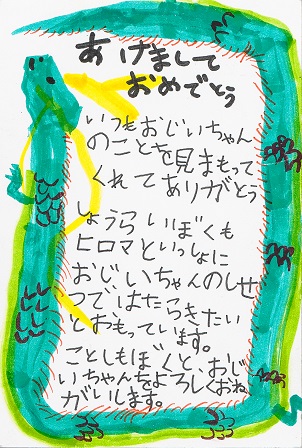 あげまして
おめでとう
いつもおじいちゃん
のことを見まもって
くれてありがとう
しょうらいぼくも
ヒロマといっしょに
おじいちゃんのしせ
つではたらきたい
とおもっています。
ことしもぼくと、おじ
いちゃんをよろしくおね
がいします。